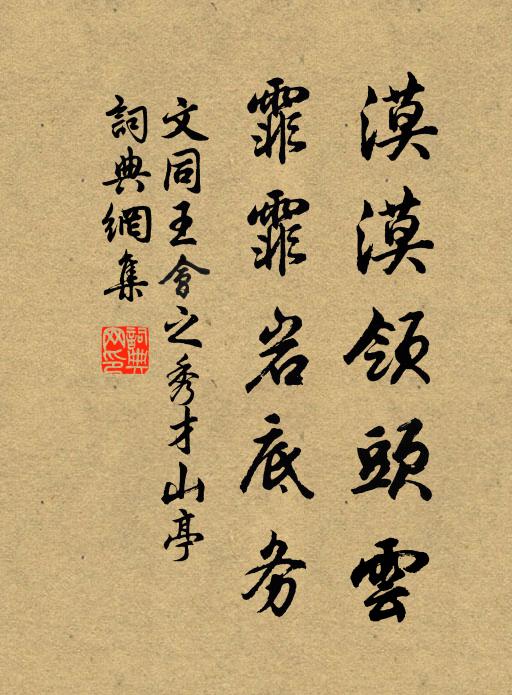 漠漠領頭雲
霏霏岩底务
文同王會之秀才山亭
詞典網集
詞典网印